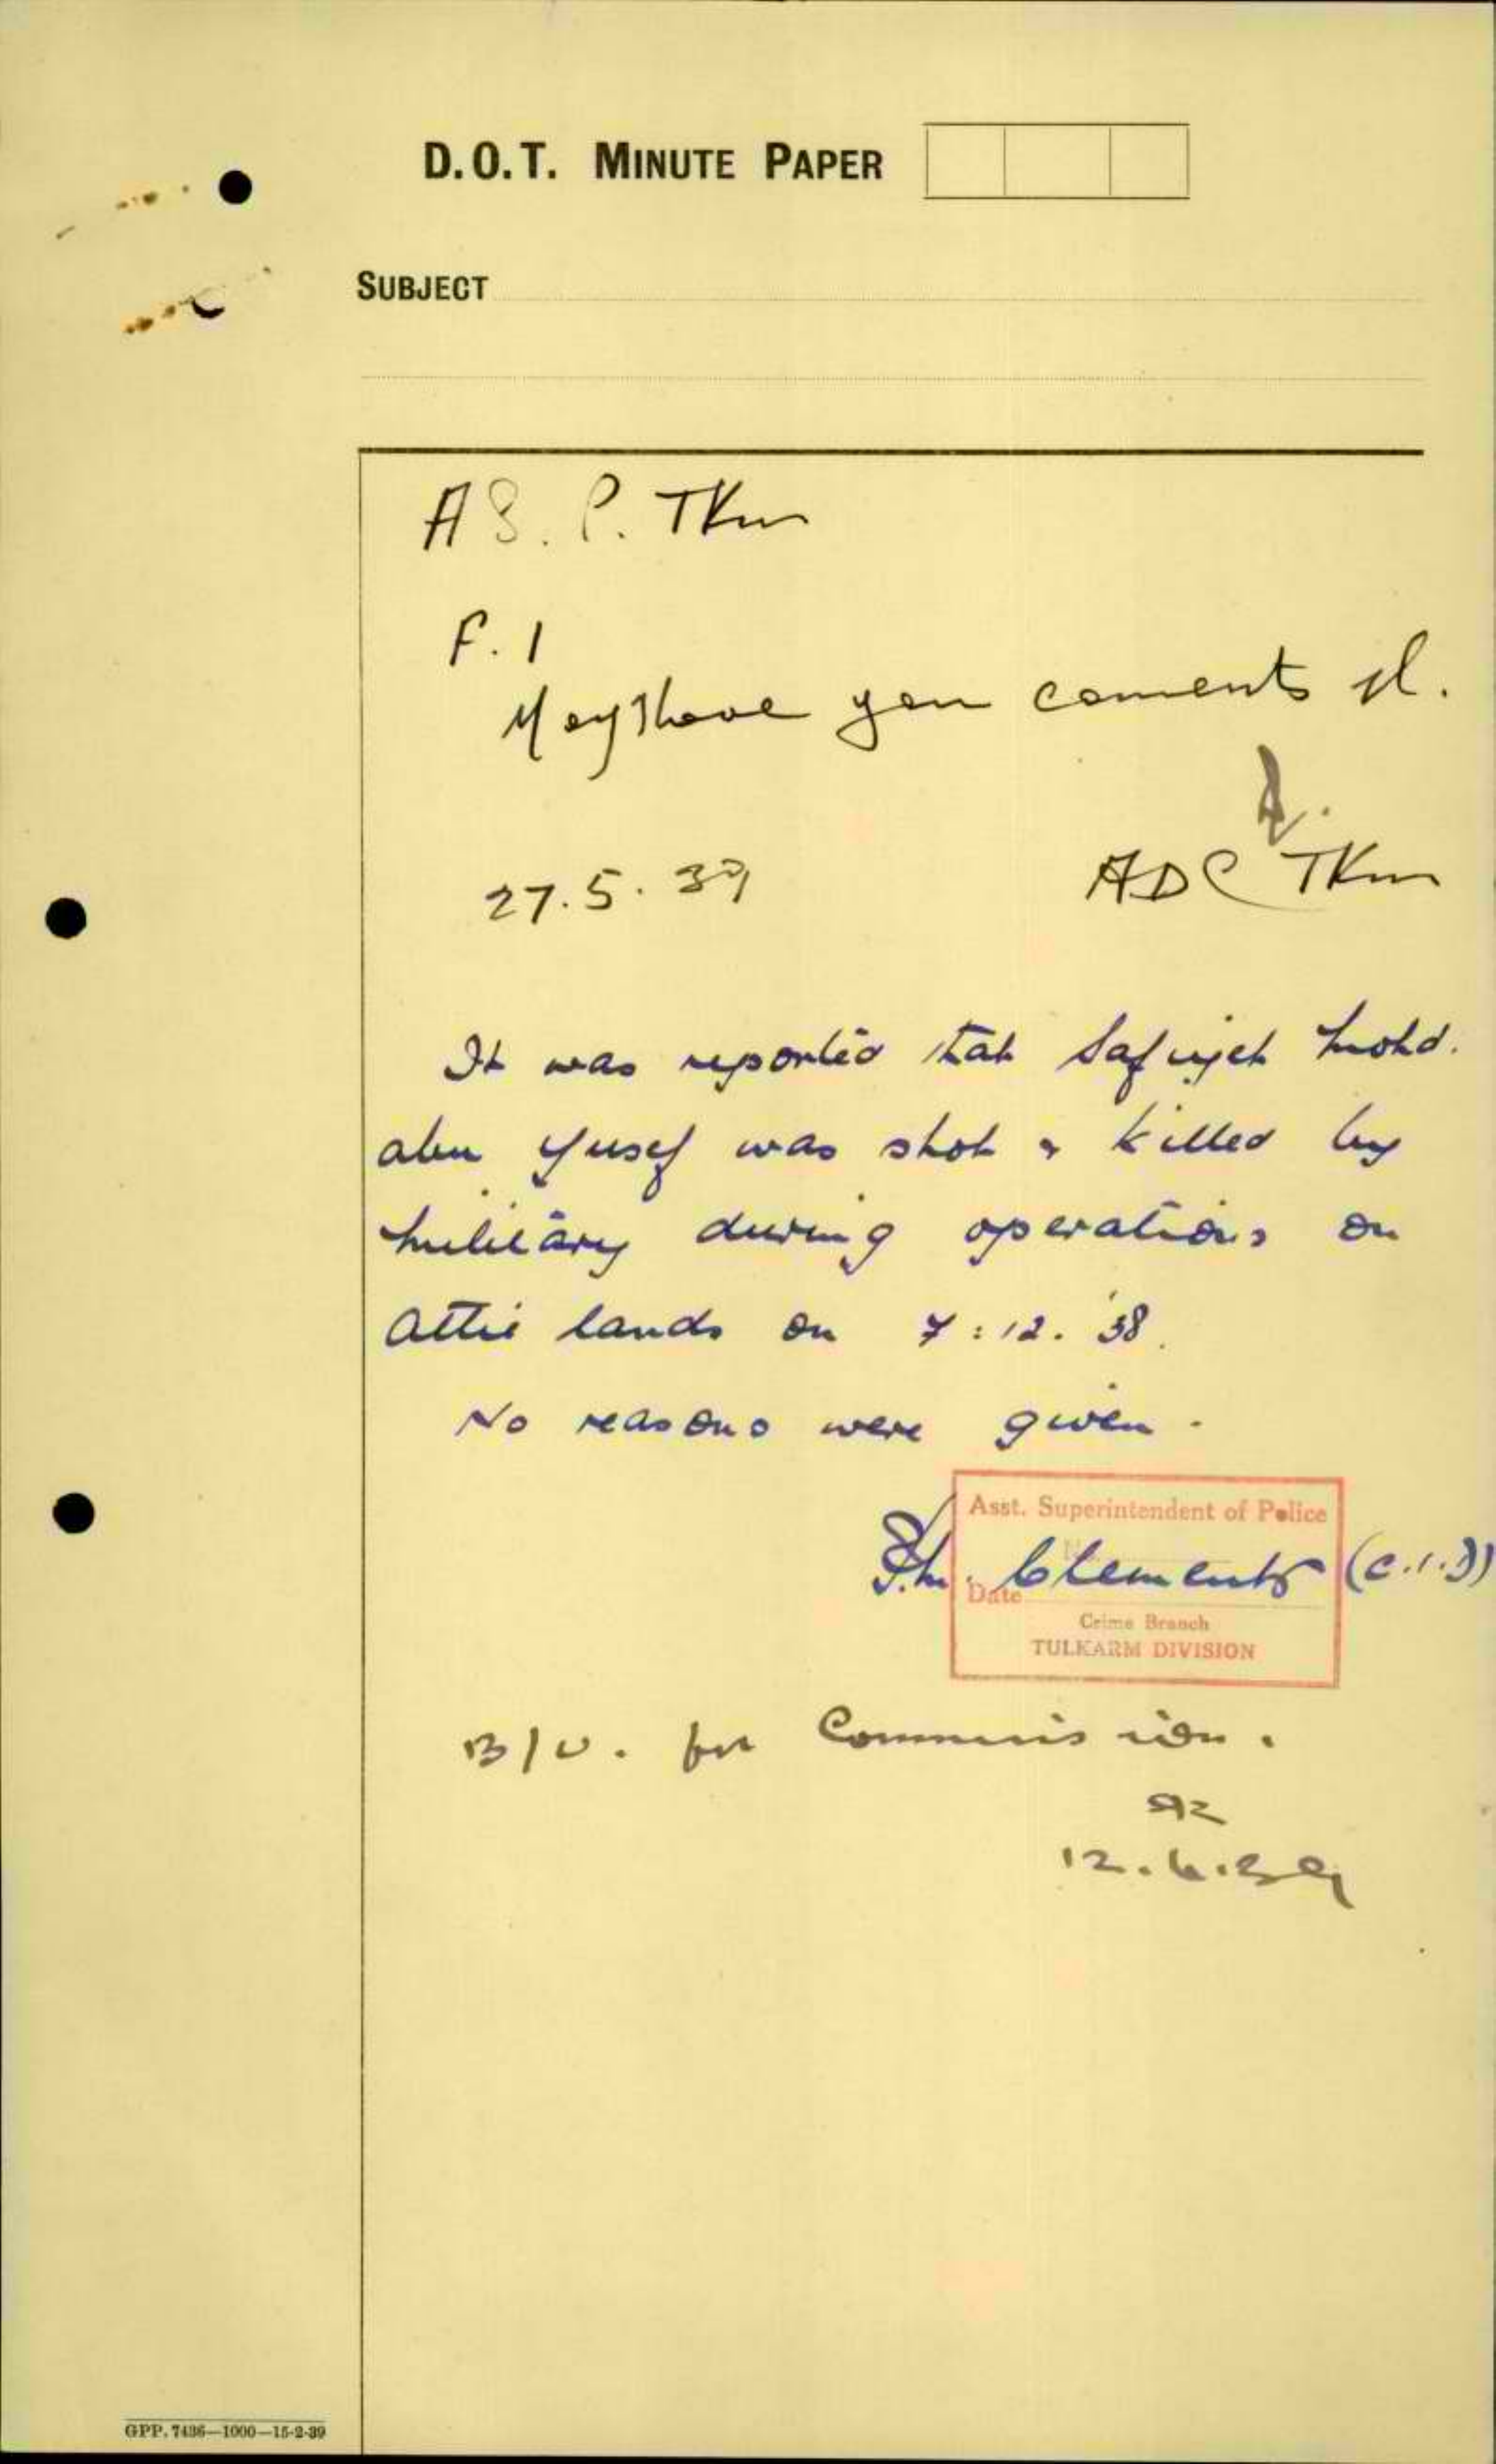 D.O.T. MINUTE PAPER
SUBJECT
A S. P. TKm
F. 1
May I have you coments pl.
27.5.39
ADC TKm
It was reported that Safiyeh Mohd.
abu Yusef was shot & killed by
military during operations on
Attil lands on 7:12.'38.
No reasons were given.
Asst. Superintendent of Police
Clements (C.I.D)
Date
Crime Branch
TULKARM DIVISION
B/U. for Commission.
12.6.39
GPP. 7436—1000—15-2-39